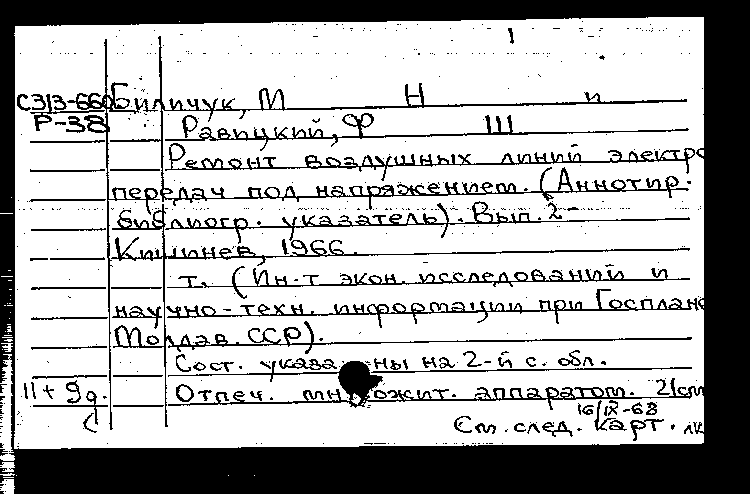 1
С313-660 Биличук, М Н и
Р-38 Равицкий, Ф Ш
Ремонт воздушных линий электро
передач под напряжением. (Аннотир.
библиогр. указатель). Вып. 2-
Кишинев, 1966.
т. (Ин-т экон. исследований и
научно-техн. информации при Госплане
Молдав. ССР).
Сост. указа ны на 2-й с. обл.
11+9д. Отпеч. мн ожит. аппаратом. 21см
16/IX-68
См. след. карт.